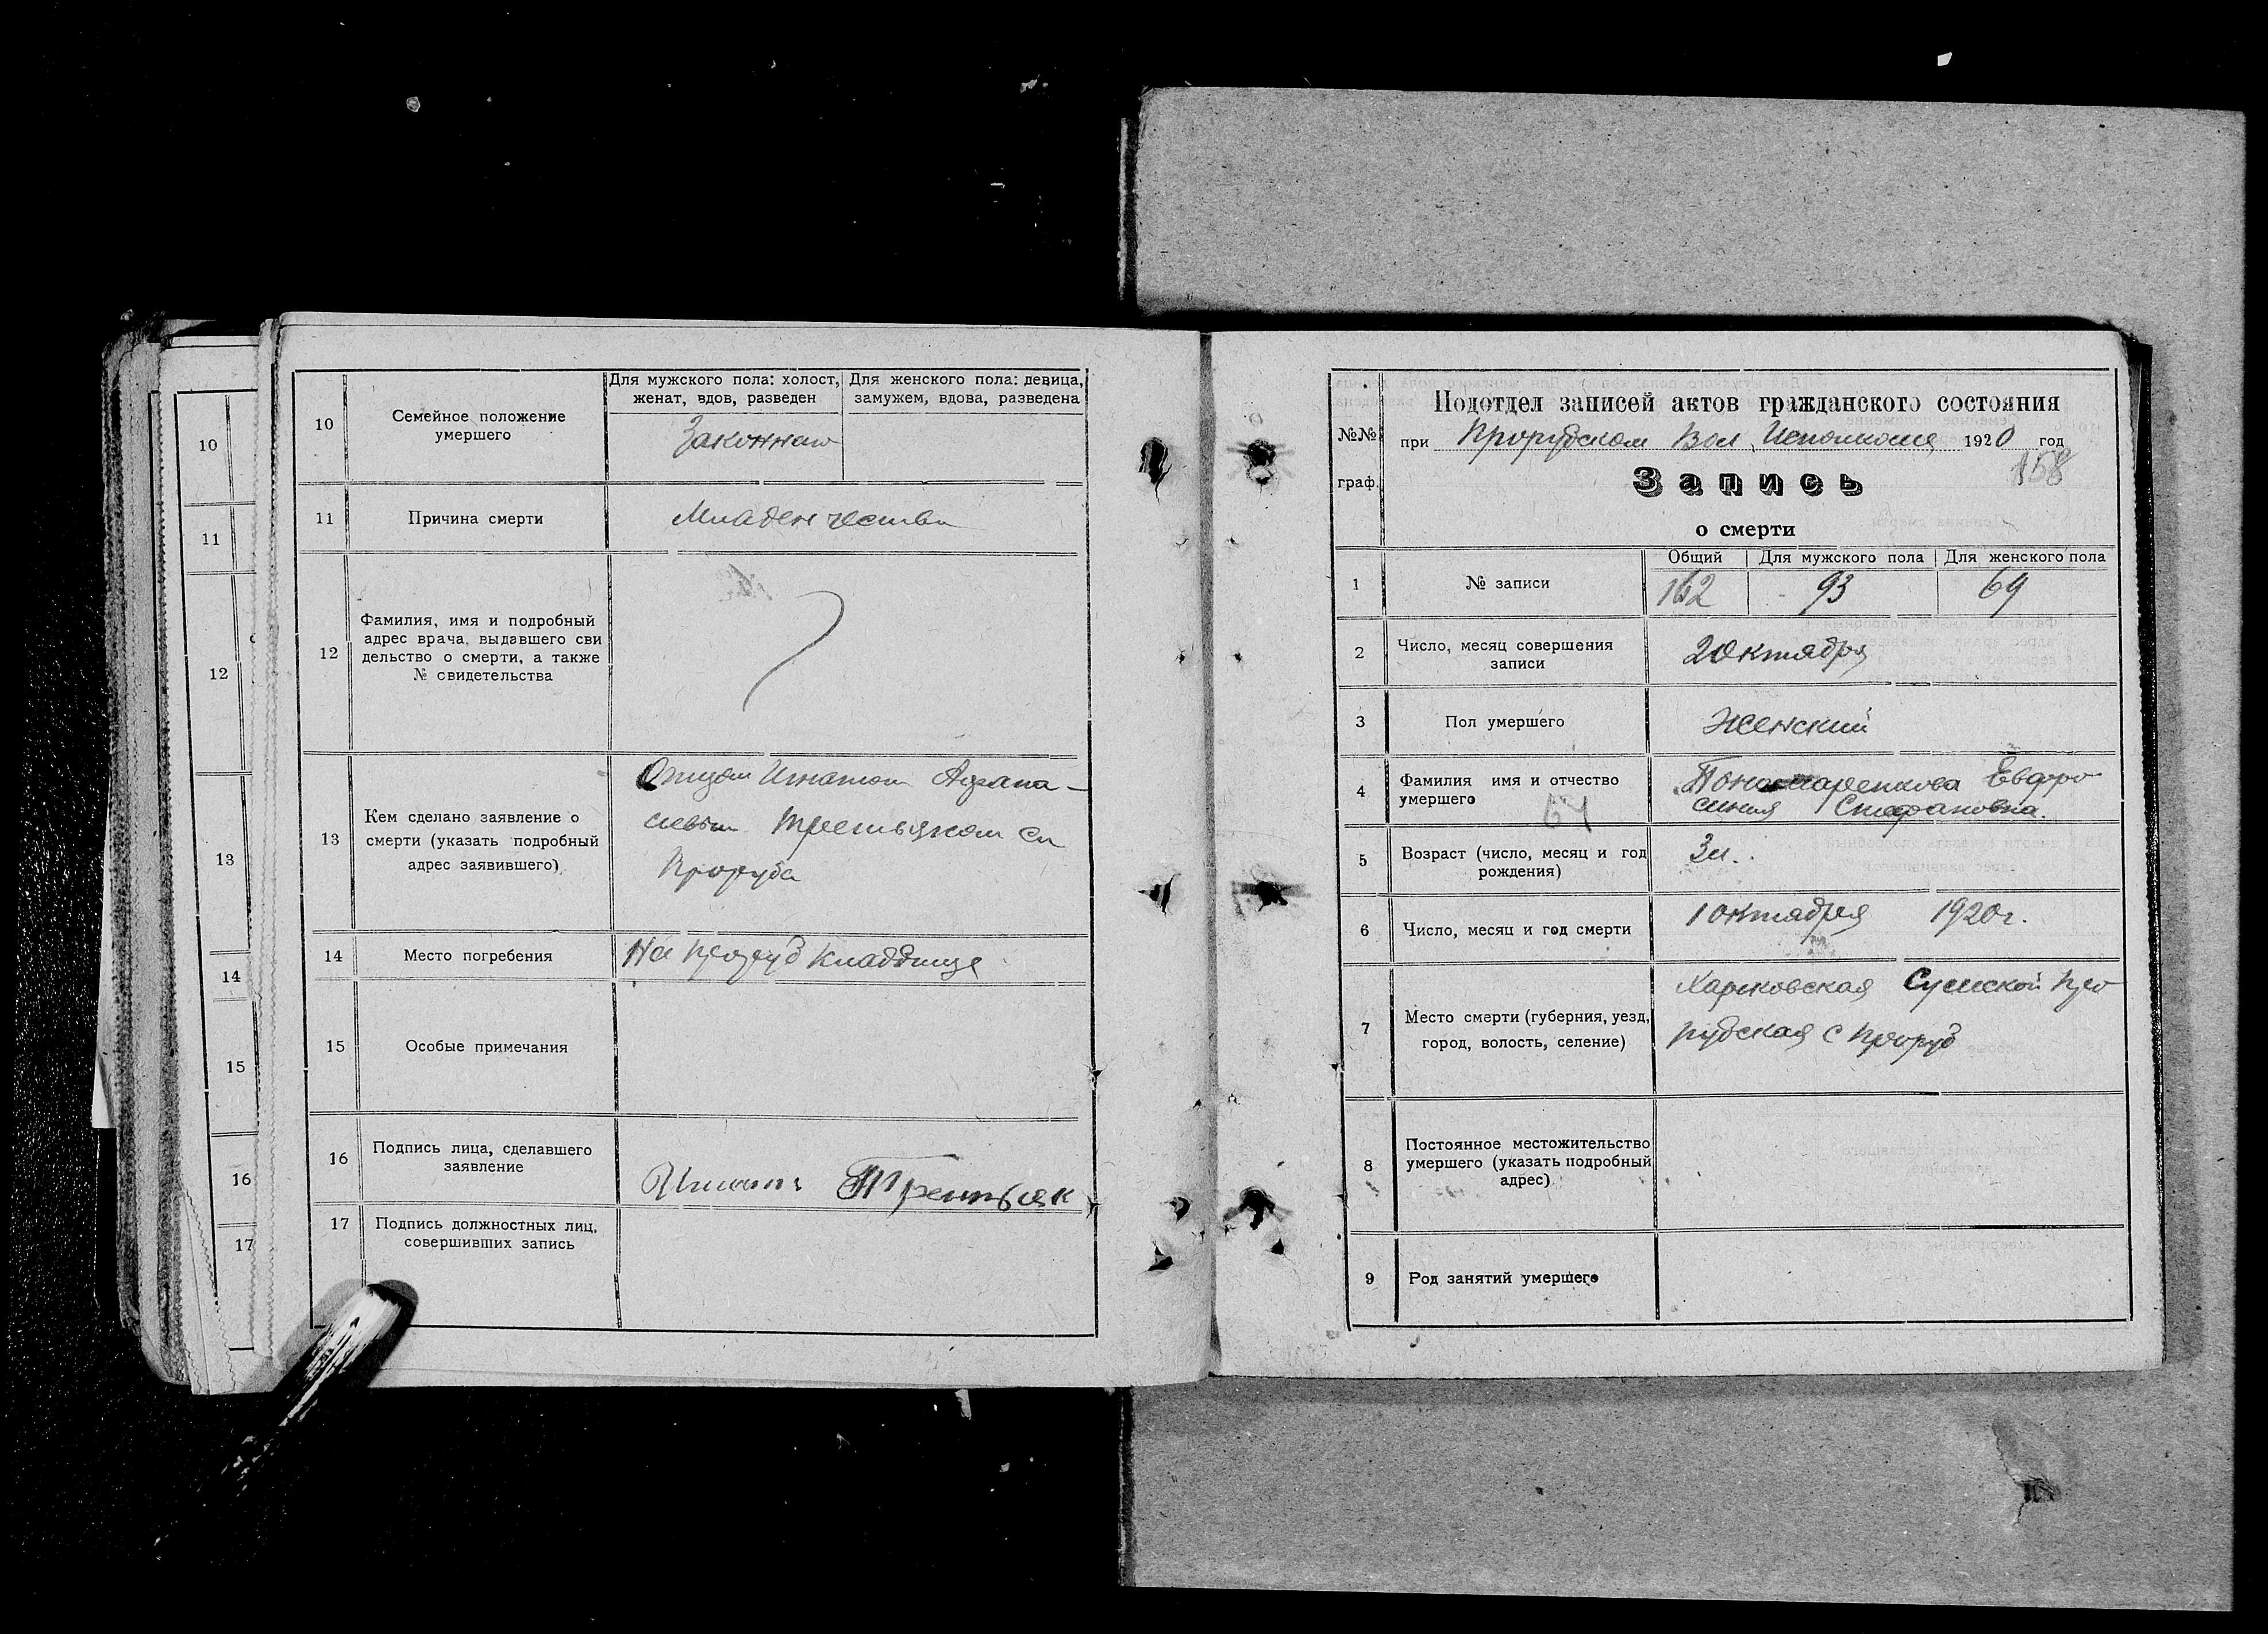 10
11
12
13
14
15
16
17
10
Семейное положение
умершего
Для мужского пола: холост,
женат, вдов, разведен
Для женского пола: девица,
замужем, вдова, разведена
11
Причина смерти
12
Фамилия, имя и подробный
адрес врача, выдавшего сви
дельство о смерти, а также
№ свидетельства
13
Кем сделано заявление о
смерти (указать подробный
адрес заявившего)
Отцом Игнатом Афана-
сиевым Третьяком сл
Проруба
14
Место погребения
На Проруб Кладдище
15
Особые примечания
16
Подпись лица, сделавшего
заявление
Третьяк
17
Подпись должностных лиц,
совершивших запись
№№
граф.
Подотдел записей актов гражданского состояния
при Прорубском Вол. Исполкоме 1920 год
158
Запись
о смерти
1
№ записи
Общий
Для мужского пола
Для женского пола
162
93
69
2
Число, месяц совершения
записи
2 Октября
3
Пол умершего
Женский
4
Фамилия имя и отчество
умершего
64
Пономаренкова Евфро
синия Стефановна.
5
Возраст (число, месяц и год
рождения)
6
Число, месяц и год смерти
1 октября 1920 г.
7
Место смерти (губерния, уезд,
город, волость, селение)
Харковская Сумской Про
рубская с Проруб
8
Постоянное местожительство
умершего (указать подробный
адрес)
9
Род занятий умершего